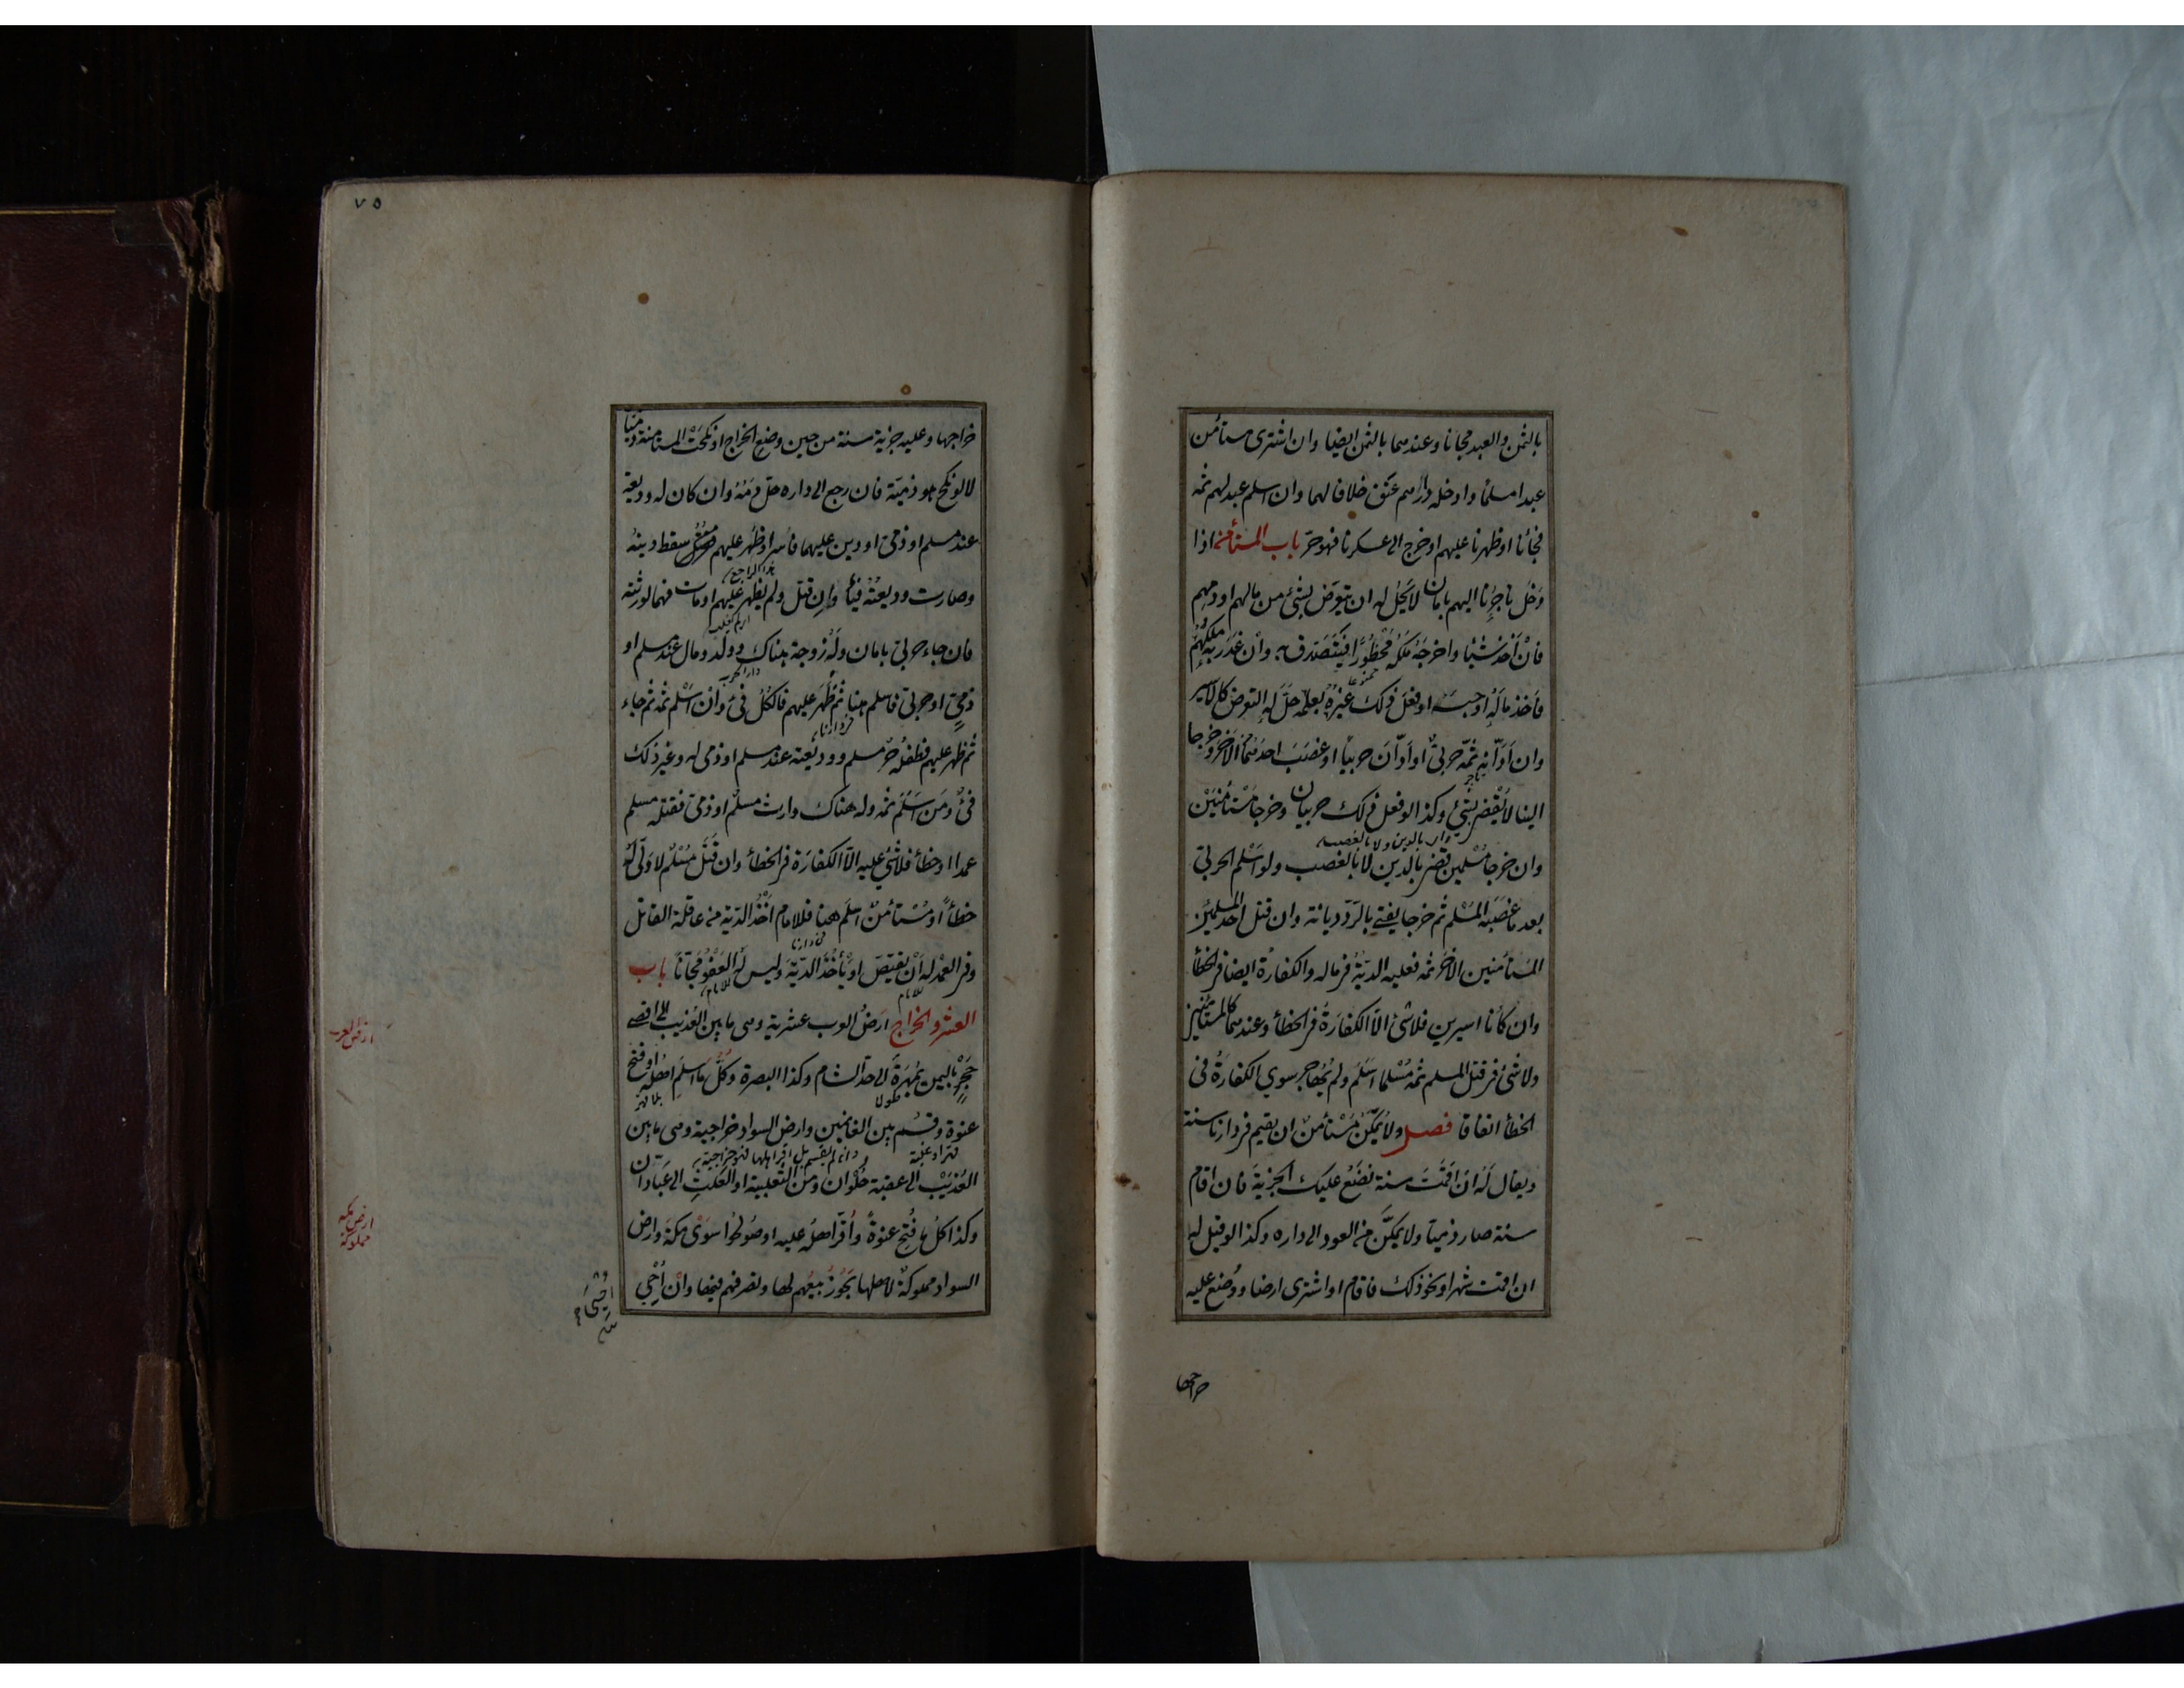 بالثمن والعبد مجانا وعندهما بالثمن ايضا وان اشترى مستأمن
عبدا مسلما وادخله دارهم عتق خلافا لهما وان اسلم عبد لهم ثمه
فجائنا او ظهرنا عليهم او خرج الى عسكرنا فهو حر باب المستأمن اذا
دخل تاجرنا اليهم بامان لا يحل له ان يتعرض بشئ من مالهم او دمهم
فان أخذ شيئا واخرجه ملكه محظورا فيتصدق به وان غدر به ملكهم
فأخذ ماله او حبسه او فعل ذلك غيره بعلمه حل له التعرض كالاسير
وان ادانه ثمه حربى او ادان حربيا او غصب احدهما الآخر وخرجا
الينا لا يقضى بشئ وكذا لو فعل ذلك حربيان وخرجا مستأمنين
وان خرجا مسلمين قضى بالدين لا بالغصب ولو اسلم الحربى
بعد ما غصبه المسلم ثم خرجا يفتى بالرد ديانة وان قتل احد المسلمين
المستأمنين الآخر ثمه فعليه الدية فى ماله والكفارة ايضا فى الخطأ
وان كانا اسيرين فلا شئ الا الكفارة فى الخطأ وعندهما كالمستأمنين
ولا شئ فى قتل المسلم ثمه مسلما اسلم ولم يهاجر سوى الكفارة فى
الخطأ اتفاقا فصل ولا يمكن مستأمن ان يقيم فى دارنا سنة
ويقال له ان اقمت سنة نضع عليك الجزية فان اقام
سنة صار ذميا ولا يمكن من العود الى داره وكذا لو قيل له
ان اقمت شهرا ونحو ذلك فاقام او اشترى ارضا ووضع عليه
خراجها
٧٥
خراجها وعليه جزية سنة من حين وضع الخراج او نكحت المستأمنة ذميا
لا لو نكح هو ذمية فان رجع الى داره حل دمه وان كان له وديعة
عند مسلم او ذمى او دين عليهما فأسر او ظهر عليهم سقط دينه
وصارت وديعته فيئا وان قتل ولم يظهر عليهم او مات فهما لورثته
فان جاء حربى بامان وله زوجة هناك وولد ومال عند مسلم او
ذمى او حربى فاسلم هنا ثم ظهر عليهم فالكل فئ وان اسلم ثمه ثم جاء
ثم ظهر عليهم فطفله حر مسلم ووديعته عند مسلم او ذمى له وغير ذلك
فئ ومن اسلم ثمه وله هناك وارث مسلم او ذمى فقتله مسلم
عمدا او خطأ فلا شئ عليه الا الكفارة فى الخطأ وان قتل مسلم لا ولى له
خطأ او مستأمن اسلم ههنا فللامام أخذ الدية من عاقلة القاتل
وفى العمد له ان يقتص او يأخذ الدية وليس له العفو مجانا باب
العشر والخراج ارض العرب عشرية وهى ما بين العذيب الى اقصى
حجر باليمن بمهرة الى حد الشام وكذا البصرة وكل ما اسلم اهله او فتح
عنوة وقسم بين الغانمين وارض السواد خراجية وهى ما بين
العذيب الى عقبة حلوان ومن الثعلبية او العلث الى عبادان
وكذا كل ما فتح عنوة وأقر اهله عليه او صولحوا سوى مكة وارض
السواد مملوكة لاهلها يجوز بيعهم لها وتصرفهم فيها وان أحيى
ارض العرب
ارض مكة
مملوكة